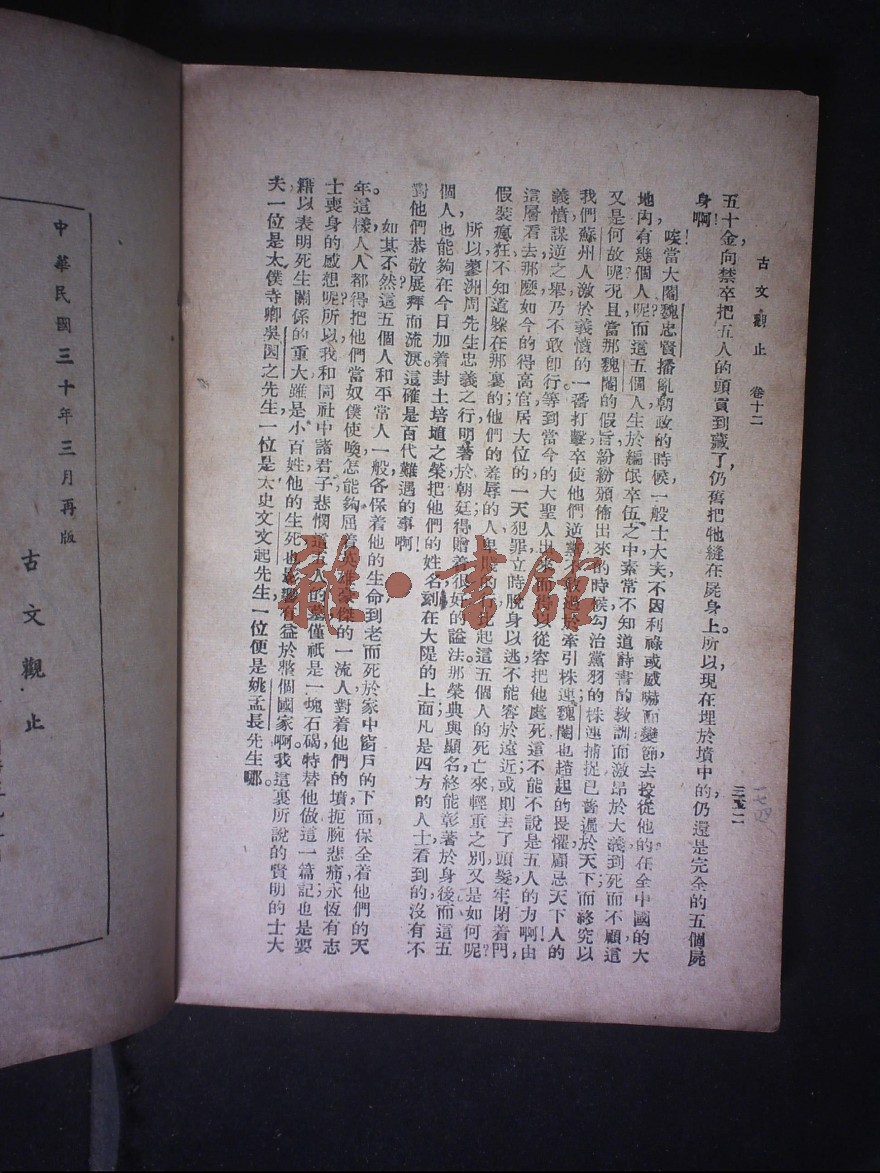 古文觀止 卷十二 三五二
一七四
五十金,向禁卒把五人的頭買到藏了,仍舊把牠縫在屍身上。所以現在埋於墳中的,仍還是完全的五個屍
身啊!
唉!當大閹魏忠賢播亂朝政的時候,一般士大夫不因利祿或威嚇而變節去投從他的,在全中國的大
地內,有幾個人呢?而這五個人生於編氓卒伍之中,素常不知道詩書的教訓,而激昂於大義,到死而不顧,這
又是何故呢?況且當那魏閹的假旨紛紛頒佈出來的時候,勾治黨羽的株連捕捉,已普遍於天下,而終究以
我們蘇州人激於義憤的一番打擊,卒使他們逆黨不敢過於牽引株連,魏閹也趑趄的畏懼顧忌天下人的
義憤,謀逆之舉,乃不敢卽行,等到當今的大聖人出來,而得以從容把他處死,這不能不說是五人的力啊!由
這層看去,那麼如今的得高官居大位的,一天犯罪,立時脫身以逃,不能容於遠近,或則丟了頭髮,牢閉着門,
假裝瘋狂,不知道躲在那裏的,他們的羞辱的人卑賤的行,比起這五個人的死亡來,輕重之別,又是如何呢?
所以蓼洲周先生忠義之行,明著於朝廷,得贈着很好的謚法,那榮典與顯名,終能彰著於身後,而這五
個人也能夠在今日加着封土培壇之榮,把他們的姓名刻在大隄的上面,凡是四方的人士看到的,沒有不
對他們恭敬展拜而流淚,這確是百代難遇的事啊!
如其不然,這五個人和平常人一般,各保着他的生命,到老而死於家中窗戶的下,而保全着他們的天
年。這樣,人人都得把他們當奴僕使喚,怎能夠屈着英雄豪傑的一流人,對着他們的墳扼腕悲痛,永恆有志
士喪身的感想呢?所以我和同社中諸君子,悲憫這五人的墓僅祇是一塊石碣,特替他做這一篇記,也是要
籍以表明死生關係的重大,雖是小百姓他的生死也是有益於整個國家啊。我這裏所說的賢明的士大
夫,一位是太僕寺卿吳因之先生,一位是太史文文起先生,一位便是姚孟長先生哪。
中華民國三十年三月再版
古文觀止